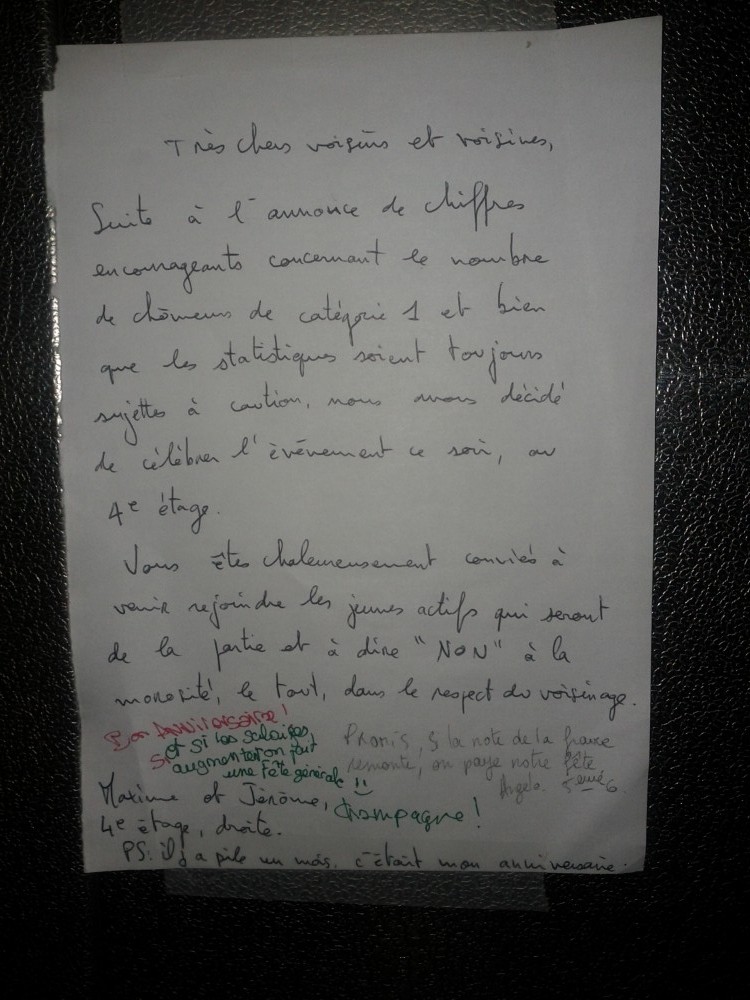 Très chers voisins et voisines,
Suite à l'annonce de chiffres
encourageants concernant le nombre
de chômeurs de catégorie 1 et bien
que les statistiques soient toujours
sujettes à caution, nous avons décidé
de célébrer l'évévement ce soir, au
4e étage.
Vous êtes chaleureusement conviés à
venir rejoindre les jeunes actifs qui seront
de la partie et à dire "NON" à la
morosité, le tout, dans le respect du voisinage.
Bon Anniversaire!
Et si les salaires
augmentent on fait
une fête générale
Champagne!
Promis, si la note de la france
remonte, on paye notre fête
Angela. 5ème G.
Maxime et Jérôme,
4e étage, droite.
PS: il y a pile un mois, c'était mon anniversaire.